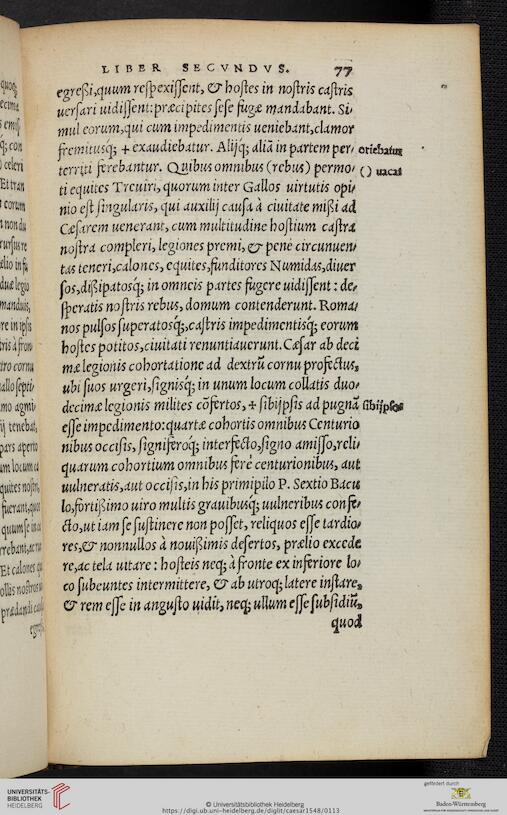 LIBER SECVNDVS. 77
egreßi, quum respexissent, & hostes in nostris castris
uersari uidissent: præcipites sese fugæ mandabant. Si-
mul eorum, qui cum impedimentis ueniebant, clamor
fremitusq; + exaudiebatur. Alijq; aliā in partem per- oriebatur
territi ferebantur. Quibus omnibus (rebus) permo- () uacat
ti equites Treuiri, quorum inter Gallos uirtutis opi-
nio est singularis, qui auxilij causa à ciuitate mißi ad
Cæsarem uenerant, cum multitudine hostium castra
nostra compleri, legiones premi, & penè circunuen-
tas teneri, calones, equites, funditores Numidas, diuer
sos, dißipatosq; in omneis partes fugere uidissent: de-
speratis nostris rebus, domum contenderunt. Roma-
nos pulsos superatosq;, castris impedimentisq; eorum
hostes potitos, ciuitati renuntiauerunt. Cæsar ab deci
mæ legionis cohortatione ad dextrū cornu profectus,
ubi suos urgeri, signisq; in unum locum collatis duo-
decimæ legionis milites cōfertos, + sibijpsis ad pugnā sibiipsos
esse impedimento: quartæ cohortis omnibus Centurio
nibus occisis, signiferoq; interfecto, signo amisso, reli-
quarum cohortium omnibus ferè centurionibus, aut
uulneratis, aut occisis, in his primipilo P. Sextio Bacu
lo, fortißimo uiro multis grauibusq; uulneribus confe-
cto, ut iam se sustinere non posset, reliquos esse tardio-
res, & nonnullos à nouißimis desertos, prælio excede
re, ac tela uitare: hosteis neq; à fronte ex inferiore lo-
co subeuntes intermittere, & ab utroq; latere instare,
& rem esse in angusto uidit, neq; ullum esse subsidiū,
quod
UNIVERSITÄTS-
BIBLIOTHEK
HEIDELBERG
© Universitätsbibliothek Heidelberg
https://digi.ub.uni-heidelberg.de/diglit/caesar1548/0113
gefördert durch
Baden-Württemberg